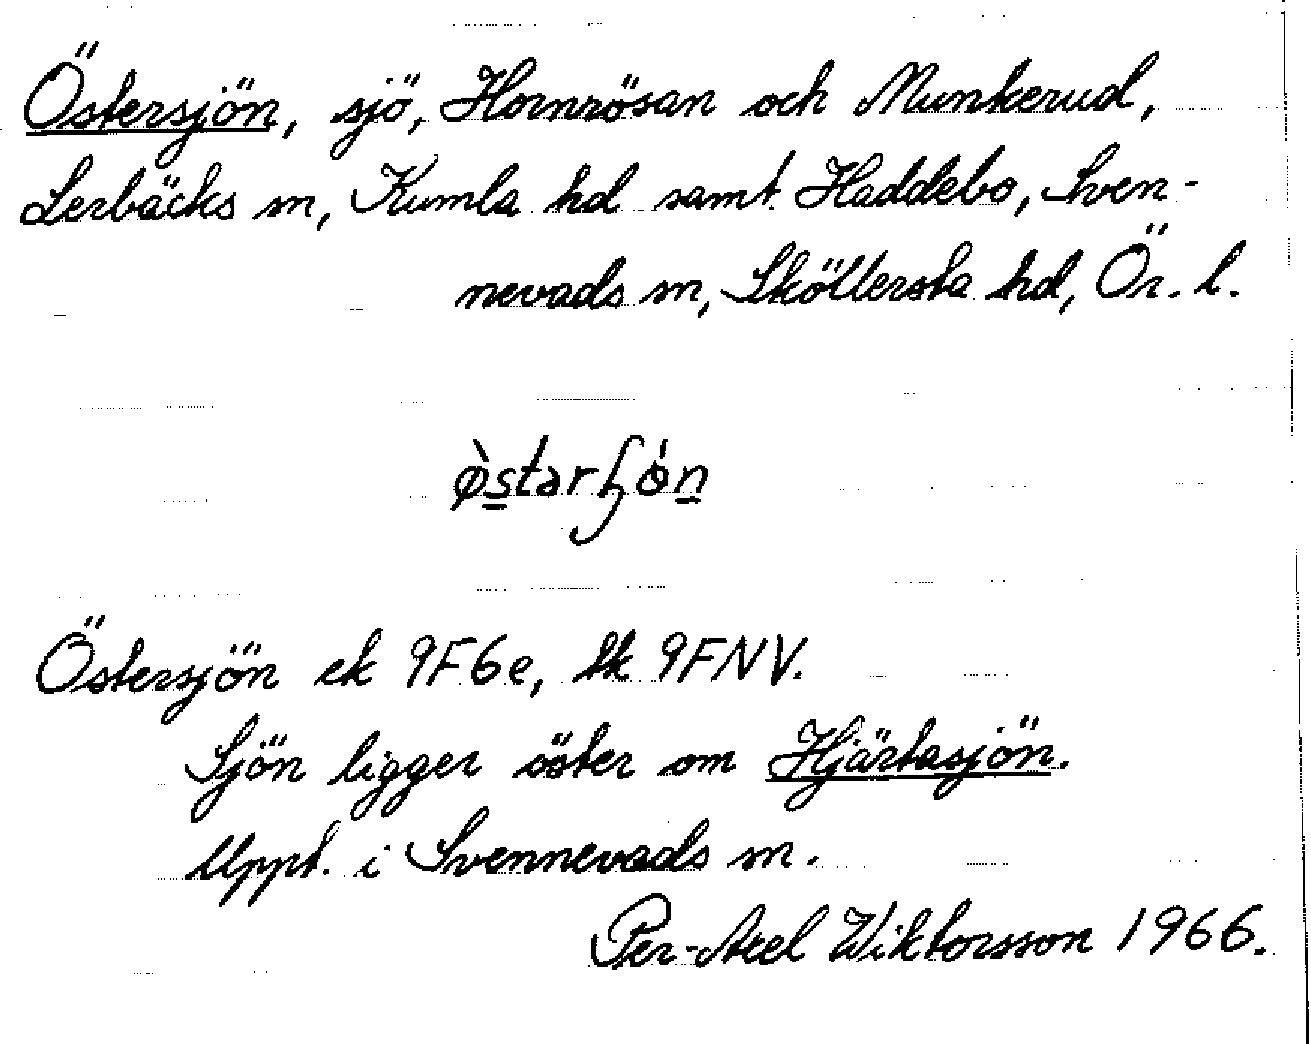 Östersjön, sjö, Hornrösan och Munkerud,
Lerbäcks sn, Kumla hd samt Haddebo, Sven-
nevads sn, Sköllersta hd, Ör. l.
Östersjön ek 9F6e, tk 9FNV.
Sjön ligger öster om Hjärtasjön.
Uppt. i Svennevads sn.
Per-Axel Wiktorsson 1966.